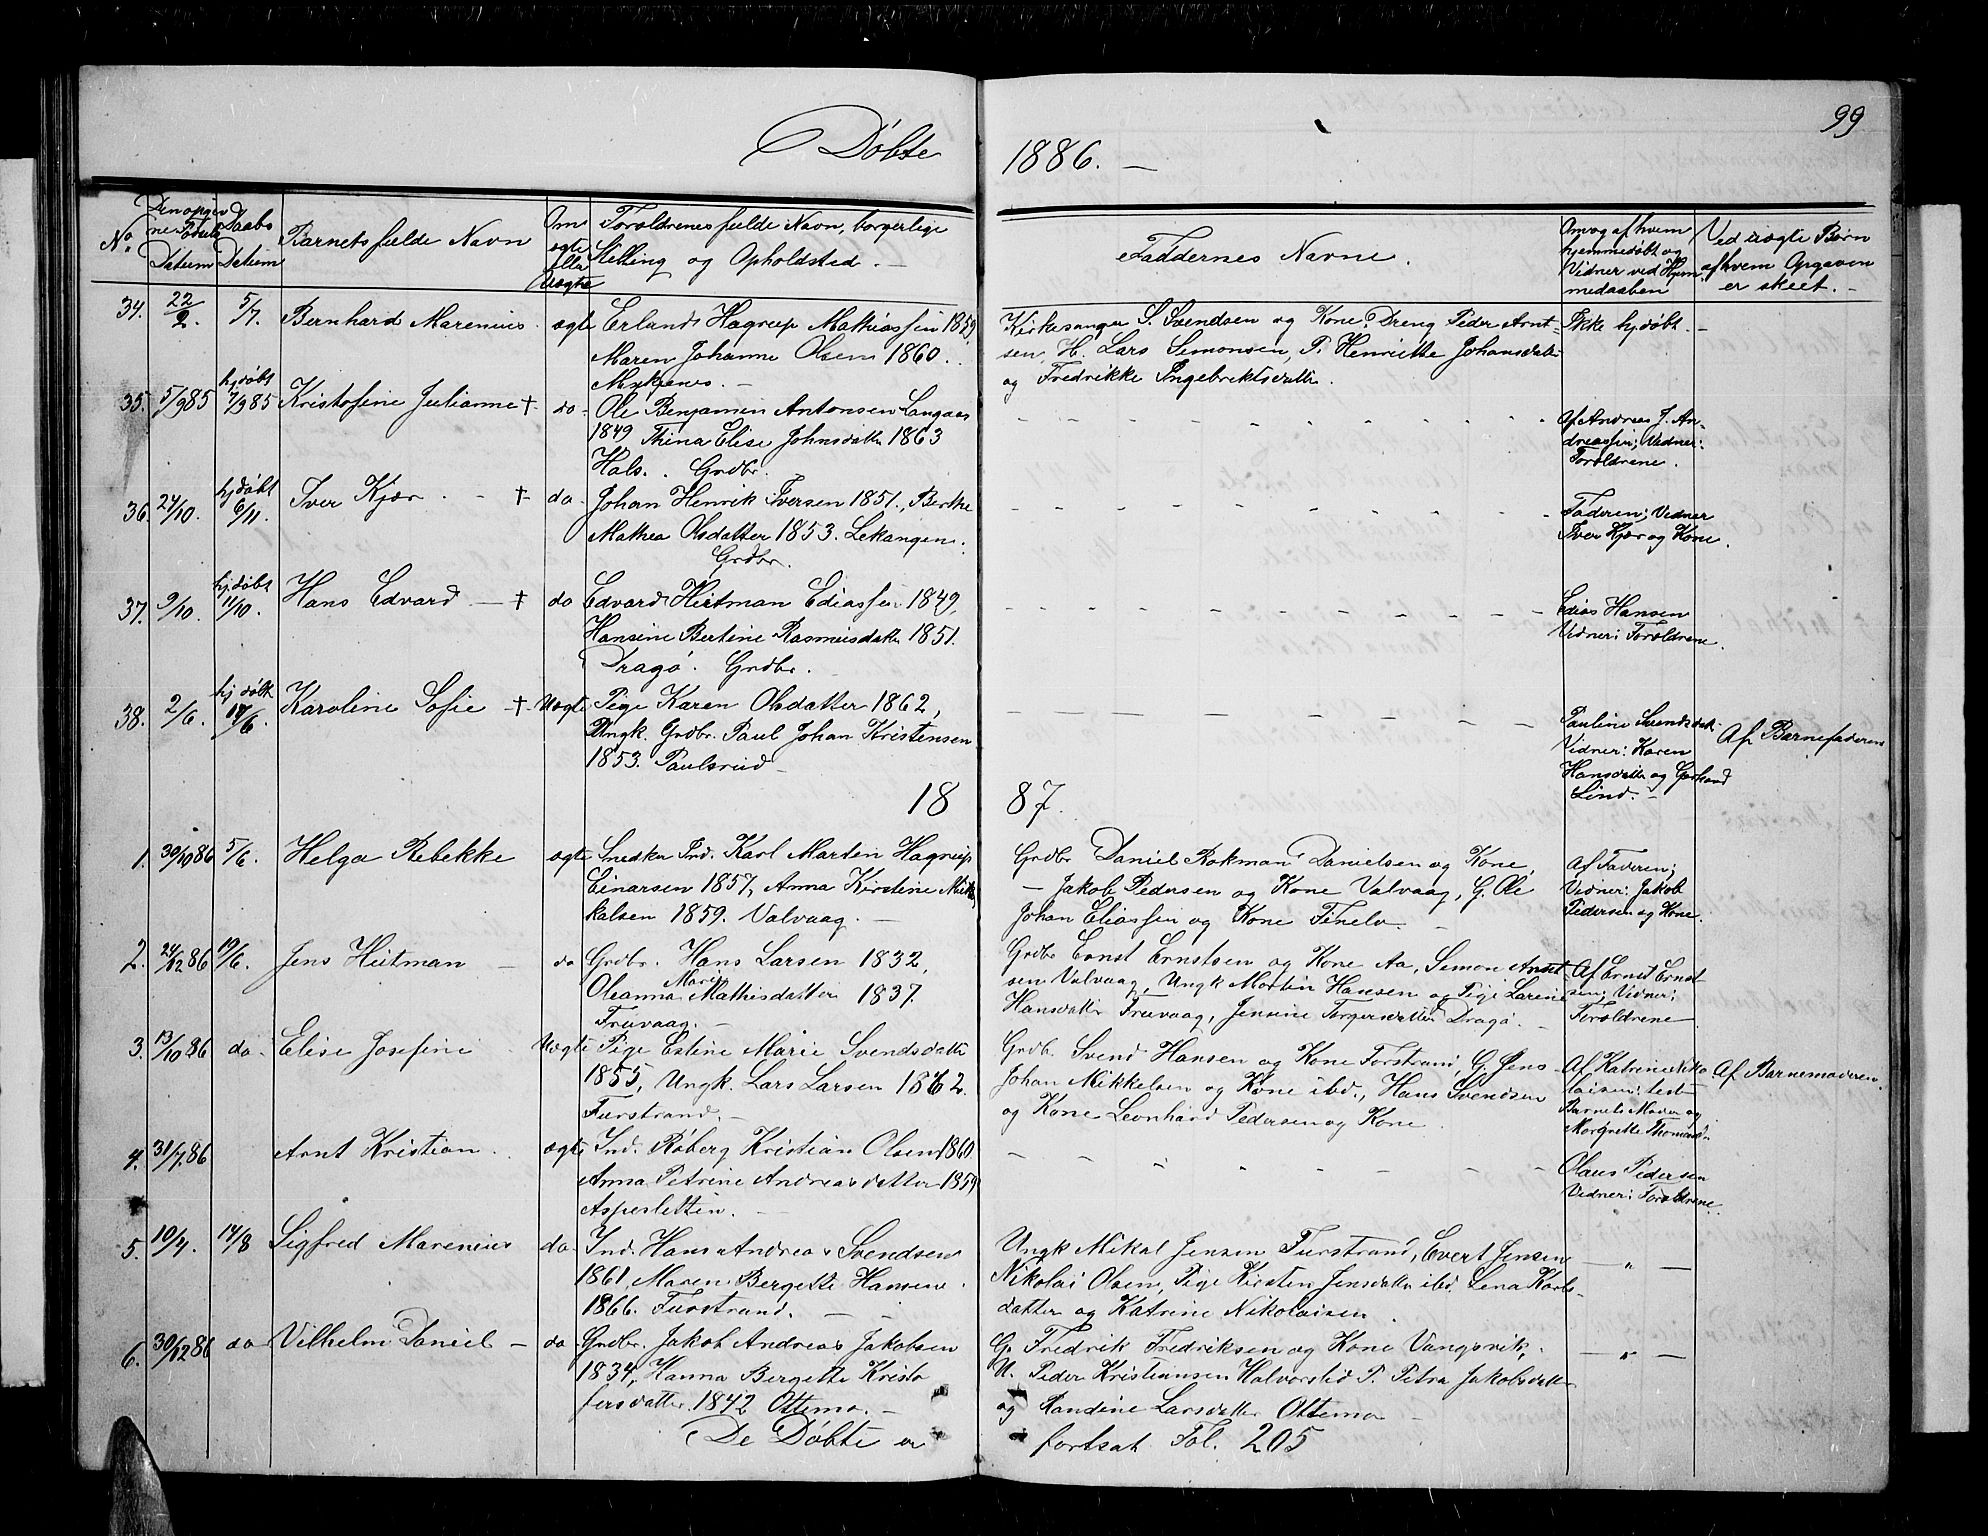 99
Døbte 1886. —
No. Datum Daabs Datum Barnets fulde Navn Om ægte eller uægte Forældrenes fulde Navn, borgerlige Stilling og Opholdsted. — Faddernes Navne. Om og af hvem hjemmedøbt og Vidner ved Hjemmedaaben Ved uægte Børn af hvem Opgaven er skeet. —
34. 22/2. 5/7. Bernhard Marenius. ægte Erland Hagrup Mathiassen 1859,
Maren Johanne Olsen 1860.
Myknes. —
Kirkesanger S. Svendsen og Kone, Dreng Peder Arnt-
sen, H. Lars Simonsen, P. Henriette Johansdatter
og Fredrikke Ingebriktsdatter.
Ikke hjdøbt. —
35. 5/9 85 hjdøbt 7/9 85 Kristofine Julianne † do Ole Benjamin Antonsen Langaas
1849 Thina Elise Johnsdatter 1863
Hals. Grdbr.
Af Andreas J. An-
dreassen; Vidner:
Forældrene.
36. 24/10. hjdøbt 6/11. Iver Kjær. — † do Johan Henrik Iversen 1851., Berthe
Mathea Olsdatter 1853. Lekangen.
Grdbr.
Faderen; Vidner
Iver Kjær og Kone.
37. 9/10. hjdøbt 11/10. Hans Edvard — † do Edvard Heitman Ediassen 1849,
Hansine Bertine Rasmusdatter 1851.
Dragø. Grdbr.
Edias Hansen
Vidner: Forældrene.
38. 2/6. hjdøbt 17/6. Karoline Sofie — † Uægte Pige Karen Olsdatter 1862,
Ungk. Grdbr. Paul Johan Kristensen
1853. Paulsrud —
Pauline Svendsdatter
Vidner: Karen
Hansdatter og Gerhard
Lind. —
Af Barnefaderen
1887.
1. 30/10 86 5/6. Helga Rebekke ægte Snedker Ind. Karl Martin Hagrup
Einarsen 1857, Anna Kirstine Mik-
kelsen 1859. Valvaag. —
Grdbr Daniel Rokman Danielsen og Kone,
— Jakob Pedersen og Kone Valvaag, G. Ole
Johan Eliassen og Kone Finelv. —
Af Faderen;
Vidner: Jakob
Pedersen og Kone.
2. 24/12 86 19/6. Jens Heitman — do Grdbr. Hans Larsen 1832,
Oleanna Marie Mathisdatter 1837.
Truvaag. —
Grdbr Ernst Ernstsen og Kone Aa, Simon Arnt-
sen Valvaag, Ungk Martin Hansen og Pige Larine
Hansdatter Truvaag, Jensine Torgersdatter Dragø. —
Af Ernst Ernst-
sen; Vidner:
Forældrene
3. 13/10 86 do. Elise Josefine Uægte Pige Estine Marie Svendsdatter
1855, Ungk. Lars Larsen 1862.
Furstrand. —
Grdb. Svend Hansen og Kone Forstrand, G. Jens
Johan Mikkelsen og Kone ibd., Hans Svendsen
og Kone Leonhard Pedersen og Kone.
Af Katrine Niko-
laisen; test
Barnets Moder og
Margrethe
Af Barnemoderen.
4. 31/7 86 Arnt Kristian. ægte Ind. Røberg Kristian Olsen 1860
Anna Petrine Andreasdatter 1859
Aspeslettin. —
Olaus Pedersen
Vidner: Forældrene.
5. 10/4. 14/8 Sigfred Marenius do. Ind. Hans Andreas Svendsen
1861, Maren Bergette Hansen
1866. Furstrand. —
Ungk Mikal Jensen Furstrand, Evert Jensen
Nikolai Olsen, Pige Kirsten Jensdatter ibd. Lena Karls-
datter og Katrine Nikolaisen.
— " —
6. 30/12 86 do Vilhelm Daniel — do Grdbr. Jakob Andreas Jakobsen
1834, Hanna Bergette Kristo
fersdatter. 1842 Ottermo. —
G. Fredrik Fredriksen og Kone Vangsvik,
U. Peder Kristiansen Halvorslid P. Petra Jakobsdatter
og Randine Larsdatter Ottermo —
— " —
De Døbte er fortsat Fol. 205